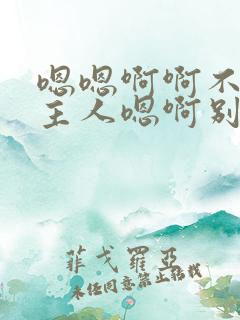 嗯嗯啊啊不
主人嗯啊别
菲戈罗亚
未经同意禁止转载